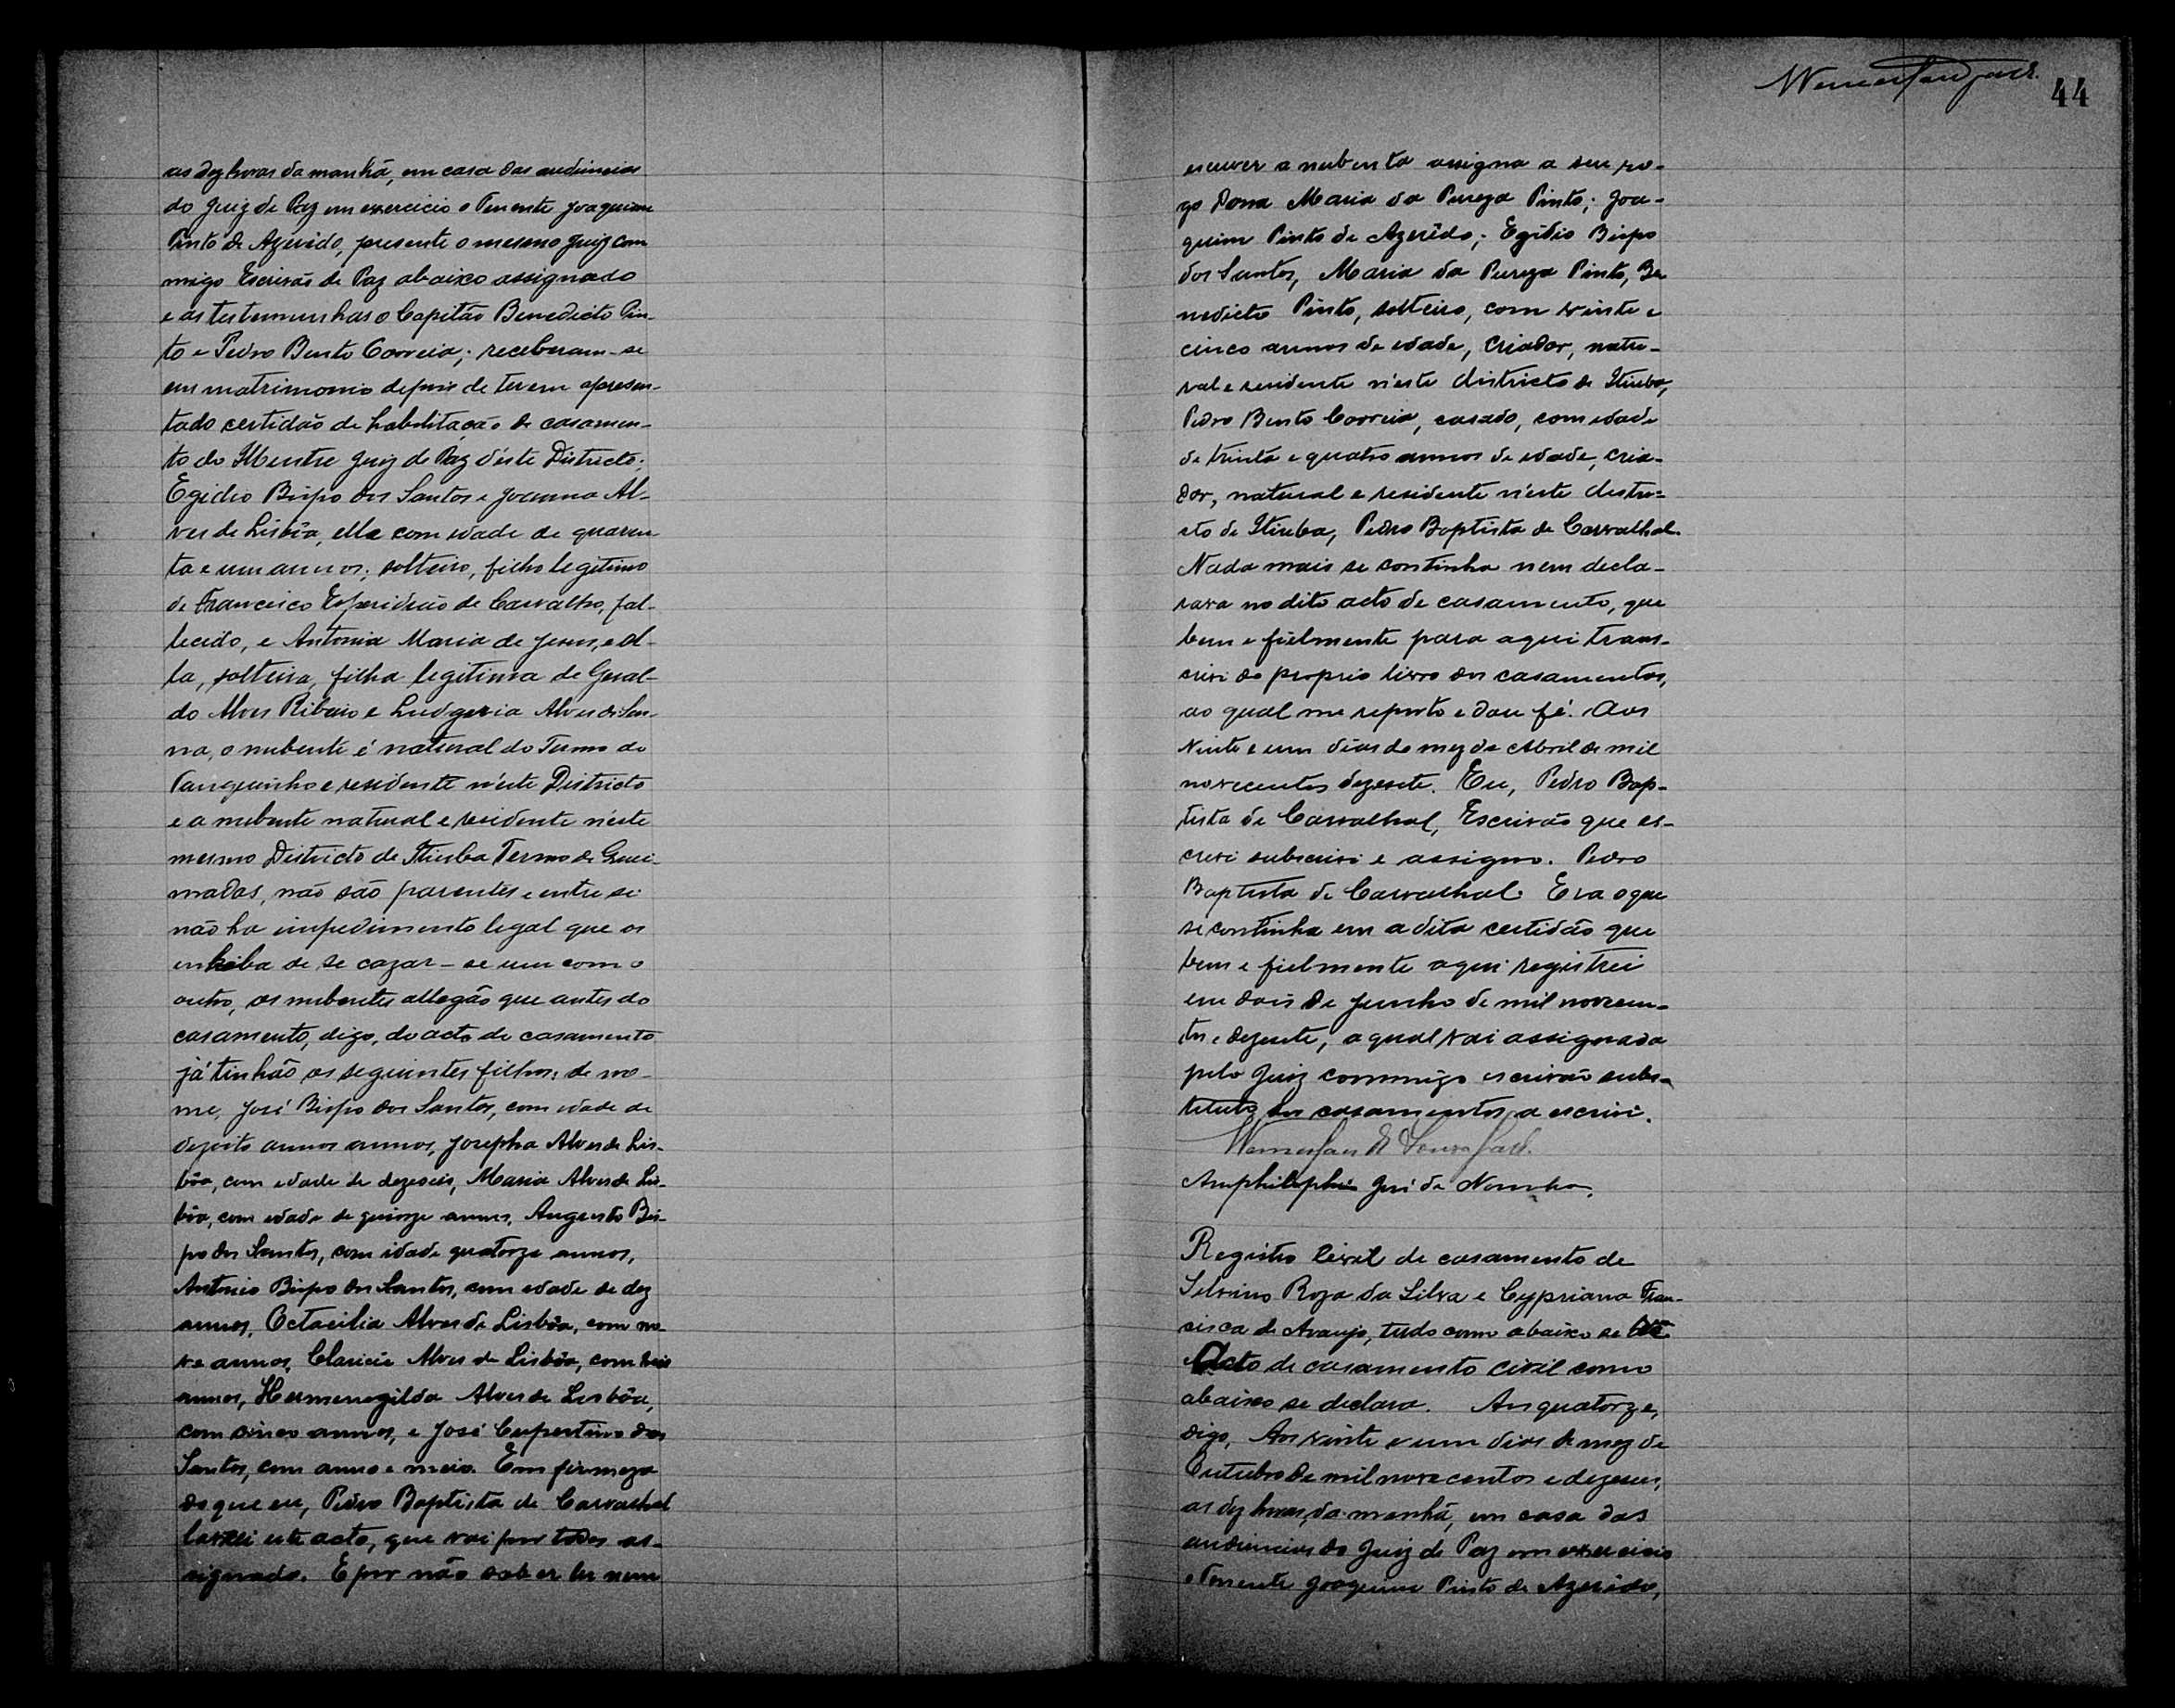 as dez horas da manhã, em casa das audiencias
do Juiz de Paz em exercicio o Tenente Joaquim
Pinto de Azerêdo, presente o mesmo Juiz com
migo Escrivão de Paz abaixo assignado
e as testemunhas o Capitão Benedicto Pin-
to e Pedro Bento Correia; receberam-se
em matrimonio depois de terem apresen-
tado certidão de habilitação de casamen-
to do Illustre Juiz de Paz d'este Districto;
Egidio Bispo dos Santos e Joanna Al-
ves de Lisbôa, elle com idade de quaren-
ta e um annos; solteiro, filho legitimo
de Francisco Esperidião de Carvalho, fal-
lecido, e Antonia Maria de Jesus, e El-
la, solteira, filha legitima de Geral-
do Alves Ribeiro e Ludgeria Alves de Sen-
na, o nubente é natural do Termo do
Tanquinho e residente n'este Districto
e a nubente natural e residente n'este
mesmo Districto de Itiuba Termo de Quei-
madas, não são parentes e entre si
não ha impedimento legal que os
inhiba de se cazar-se um com o
outro, os nubentes allegão que antes do
casamento, digo, do acto do casamento
já tinhão os seguintes filhos; de no-
me, José Bispo dos Santos, com idade de
dezoito annos annos, Josepha Alves de Lis-
bôa, com edade de dezeseis, Maria Alves de Lis-
bôa, com edade de quinze annos, Augusto Bis-
po dos Santos, com idade quatorze annos,
Antonio Bispo dos Santos, com edade de dez
annos, Octacilia Alves de Lisbôa, com no-
ve annos, Claricie Alves de Lisbôa, com seis
annos, Hermenegilda Alves de Lisbôa,
com cinco annos, e José Cupertino dos
Santos, com anno e meio. Em firmeza
do que eu, Pedro Baptista de Carvalhal
lavrei este acto, que vai por todos as-
signado. E por não saber ler nem
44
escrever a nubente assigna a seu ro-
go Dona Maria da Pureza Pinto; Joa-
quim Pinto de Azerêdo; Egidio Bispo
dos Santos, Maria da Pureza Pinto, Be
nedicto Pinto, solteiro, com vinte e
cinco annos de edade, criador, natu-
ral e residente n'este districto de Itiuba,
Pedro Bento Correia, casado, com edade
de trinta e quatro annos de edade, cria-
dor, natural e residente n'este distri=
cto de Itiuba, Pedro Baptista de Carvalhal.
Nada mais se continha nem decla-
rava no dito acto de casamento, que
bem e fielmente para aqui trans-
crivi do proprio livro dos casamentos,
ao qual me reporto e dou fé. Aos
vinte e um dias do mez de Abril de mil
novecentos dezesete. Eu, Pedro Bap-
tista de Carvalhal, Escrivão que es-
crevi subscrivi e assigno. Pedro
Baptista de Carvalhal. Era o que
se continha em a dita certidão que
bem e fielmente aqui registrei
em dois de Junho de mil novecen-
tos e dezesete, a qual vai assignada
pelo Juiz commigo escrivão subs-
tituto dos casamentos a escrivi.
Amphilophio José de Noronha.
Registro Civil de casamento de
Silvino Roza da Silva e Cypriana Fran-
cisca de Araujo, tudo como abaixo se vê
Acto de casamento civil como
abaixo se declara. Aos quatorze,
digo, Aos vinte e um dias do mez de
Outubro de mil nove centos e dezeseis,
as dez horas, da manhã, em casa das
audiencias do Juiz de Paz em exercicio
o Tenente Joaquim Pinto de Azerêdo,